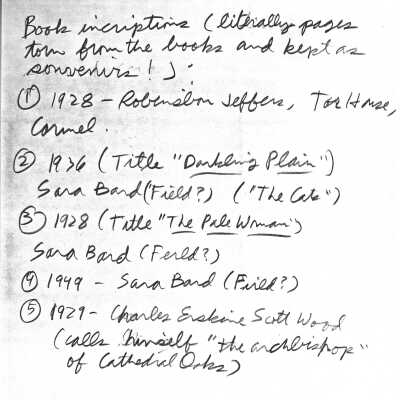 Book incriptions (literally pages
torn from the books and kept as
souvenirs!):
① 1928 - Robinson Jeffers, Tor House,
Carmel.
② 1936 (Title "Darkling Plain")
Sara Bard (Field?) ("The Cats")
③ 1928 (Title "The Pale Woman")
Sara Bard (Field?)
④ 1949 - Sara Bard (Field?)
⑤ 1929 - Charles Erskine Scott Wood
(calls himself "the archbishop"
of Cathedral Oaks)